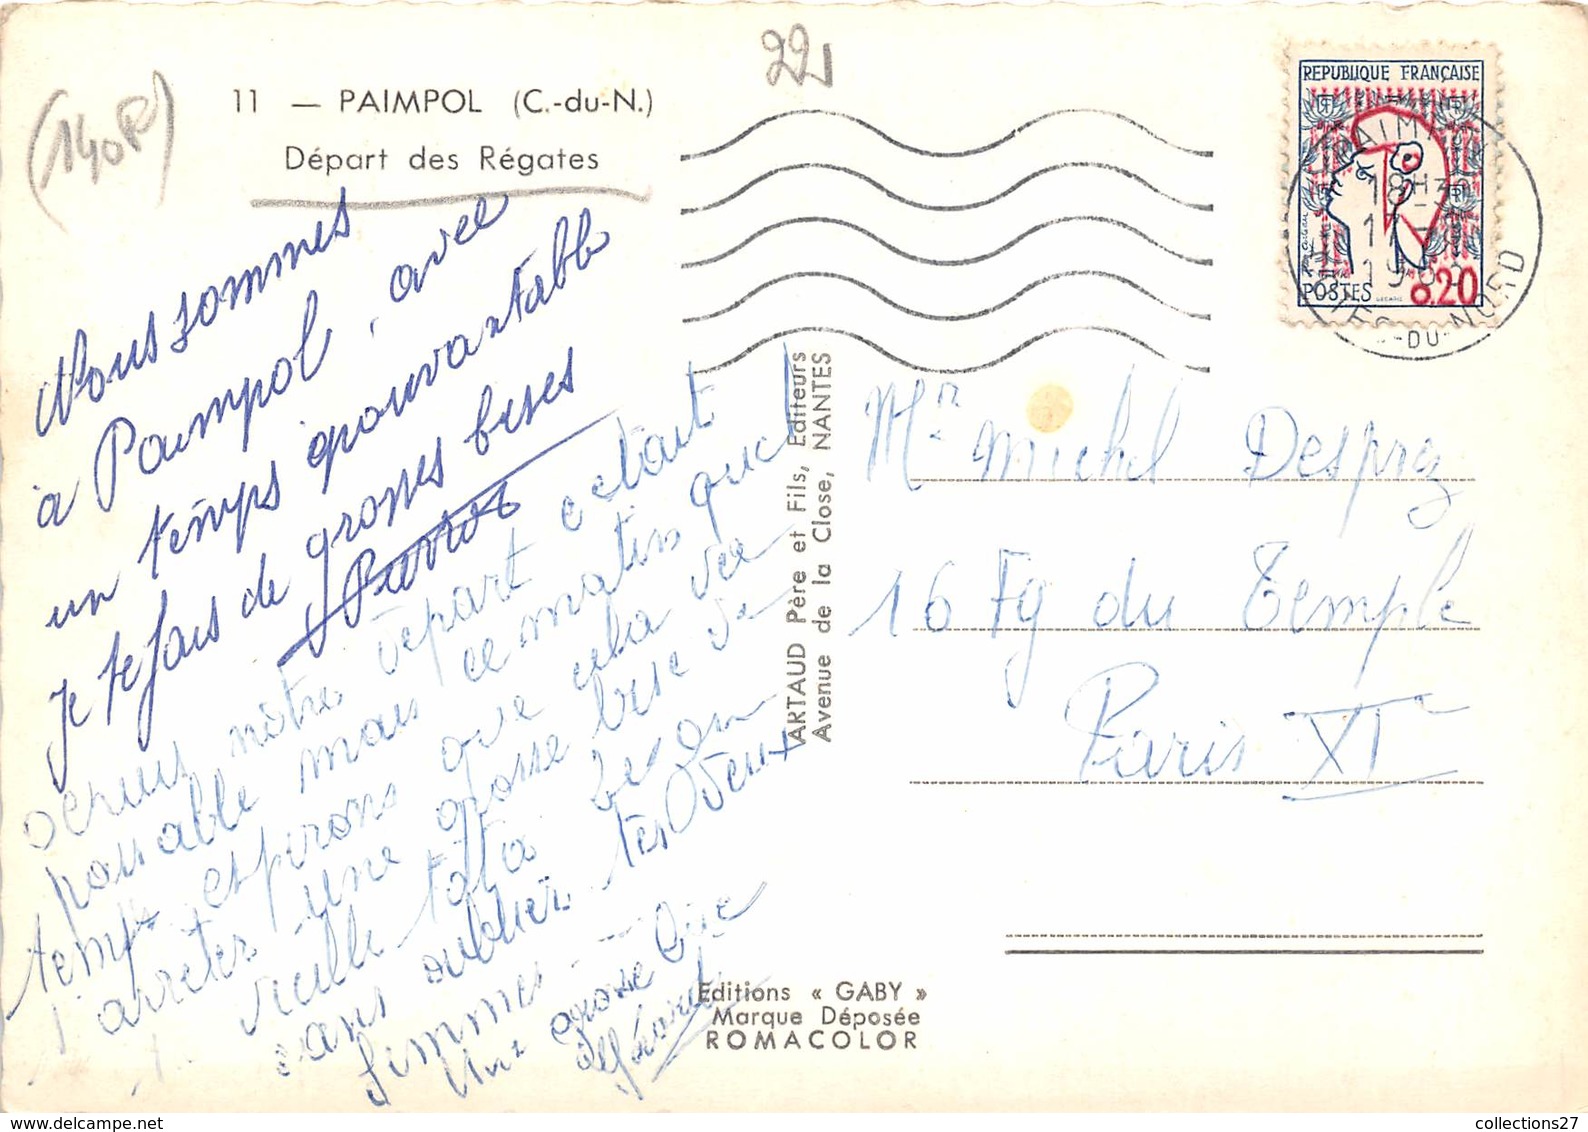 22
(140R)
11 — PAIMPOL (C.-du-N.)
Départ des Régates
REPUBLIQUE FRANÇAISE
POSTES 0.20
PAIMPOL
18H30
CÔTES-DU-NORD
Nous sommes
à Paimpol, avec
un temps épouvantable
je te fais de grosses bises
depuis nôtre départ c'était
passable mais ce matin quel
temps espirons que celui va
s'arreter une grosse bise de
vieille tata
sans oublier tes deux
femmes
une grosse bise
Gérard
Mr Michel Desprez
16 Fg du Temple
Paris XIe
ARTAUD Père et Fils, Editeurs
Avenue de la Close, NANTES
Editions « GABY »
Marque Déposée
ROMACOLOR
collections27